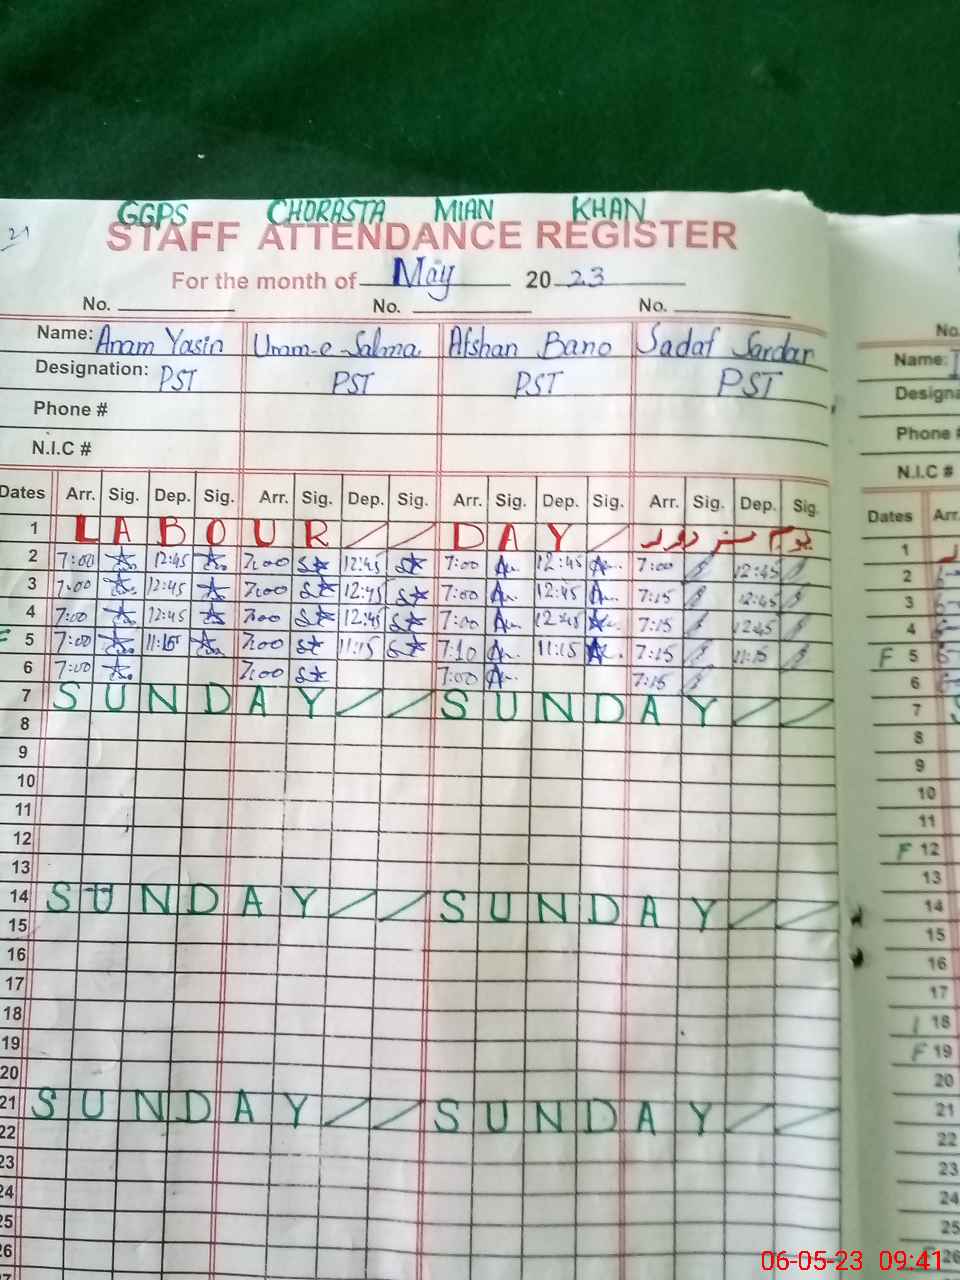 21
GGPS CHORASTA MIAN KHAN
STAFF ATTENDANCE REGISTER
For the month of May 2023
No. No. No.
Name: Anam Yasin Umm-e Salma Afshan Bano Sadaf Sardar
Designation: PST PST PST PST
Phone #
N.I.C #
Dates Arr. Sig. Dep. Sig. Arr. Sig. Dep. Sig. Arr. Sig. Dep. Sig. Arr. Sig. Dep. Sig.
1 LABOUR DAY
2 7:00 12:45 7:00 12:45 7:00 12:45 7:00 12:45
3 7:00 12:45 7:00 12:45 7:00 12:45 7:15 12:45
4 7:00 12:45 7:00 12:45 7:00 12:45 7:15 12:45
F 5 7:00 11:15 7:00 11:15 7:10 11:15 7:15 11:15
6 7:00 7:00 7:00 7:15
7 SUNDAY SUNDAY
8
9
10
11
12
13
14 SUNDAY SUNDAY
15
16
17
18
19
20
21 SUNDAY SUNDAY
22
23
24
25
26
No.
Name:
Designa
Phone #
N.I.C #
Dates Arr.
1
2
3
4
F 5
6
7
8
9
10
11
F 12
13
14
15
16
17
18
F 19
20
21
22
23
24
25
26
06-05-23 09:41